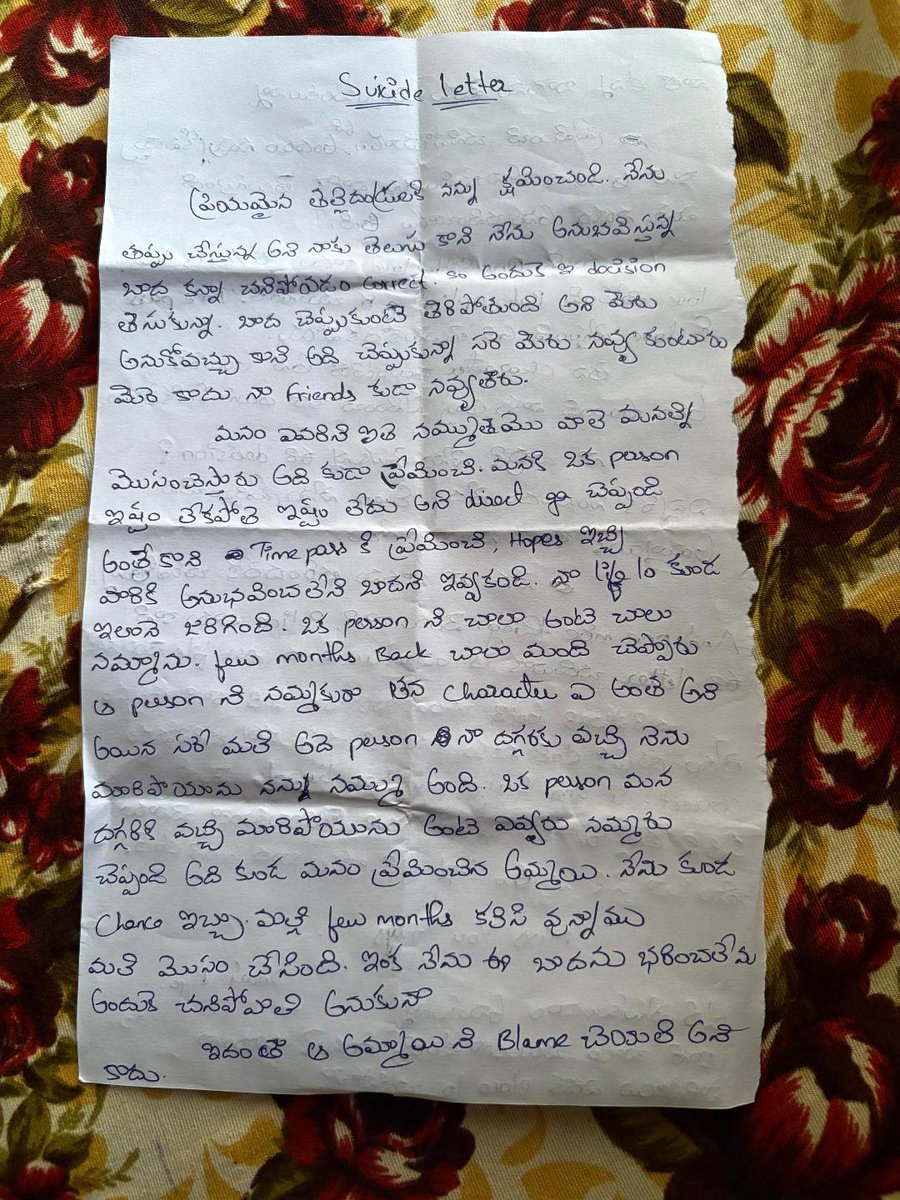 Suicide letter
ప్రియమైన తల్లిదండ్రులకి నన్ను క్షమించండి. నేను
తప్పు చేస్తున్న అని నాకు తెలుసు కాని నేను అనుభవిస్తున్న
బాద కన్నా చనిపోయడం correct. అందుకె ఇ decision
తెసుకున్న. బాద చెప్పుకుంటె తిరిపోతుంది అని మెరు
అనుకోవచ్చు కాని అది చెప్పుకున్నా సరె మెరు నవ్వుకుంటారు
మెరె కాదు నా friends కుడా నవ్వుతారు.
మనం ఎవరిని ఐతె నమ్ముతమొ వాలె మనల్ని
మొసంచెస్తారు అది కుడా ప్రేమించి. మనకి ఒక person
ఇష్టం లేకపోతె ఇష్టం లేదు అని direct ga చెప్పండి
అంతే కాని Time pass కి ప్రేమించి, Hopes ఇచ్చి
వారికి అనుభవించలేని బాదని ఇవ్వకండి. నా life lo కుండ
ఇలానె జరిగింది. ఒక person ని చాలా అంటె చాలు
నమ్మాను. few months Back చాలు మంది చెప్పారు
ఆ person ని నమ్మకురా తన character ఏ అంతె అని
అయిన సరె మలి అదె person నా దగ్గరకు వచ్చి నెను
మారిపొయాను నన్ను నమ్ము అంది. ఒక person మన
దగ్గరికి వచ్చి మారిపొయాను అంటె ఎవ్వరు నమ్మరు
చెప్పండి అది కుండ మనం ప్రేమించిన అమ్మాయి. నేను కుండ
Chance ఇచ్చా. మల్లి few months కలిసి వున్నాము
మలి మొసం చేసింది. ఇంక నేను ఈ బాదను భరించలేను
అందుకె చనిపోవాలి అనుకున్నా
ఇదంతా ఆ అమ్మాయి ని Blame చెయాలి అని
కాదు.